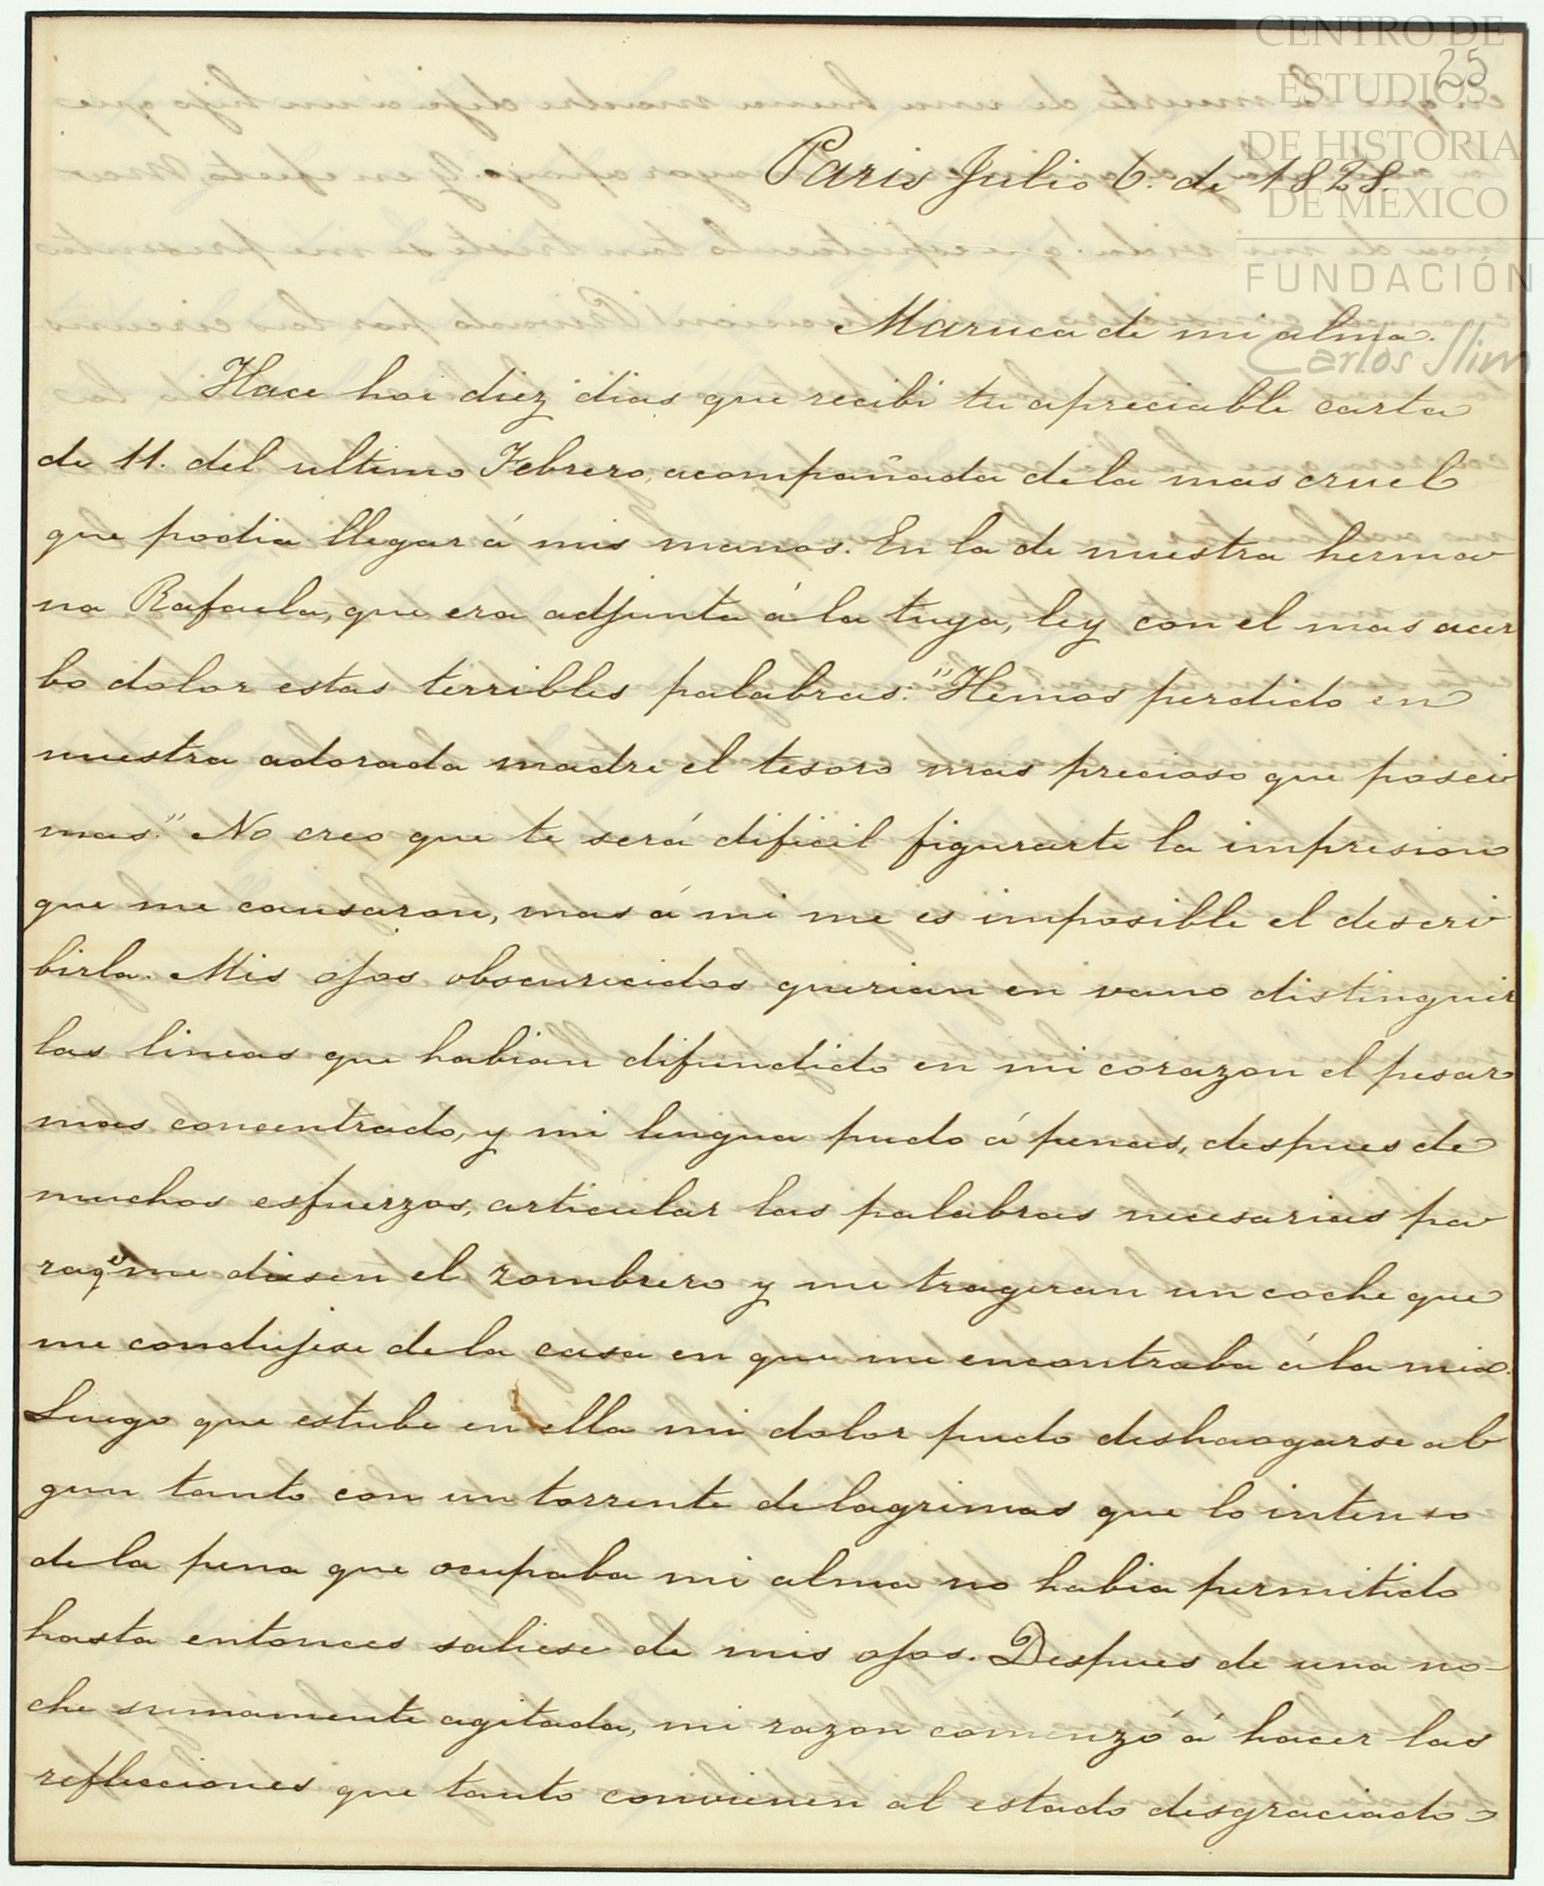 CENTRO DE
ESTUDIOS
DE HISTORIA
DE MEXICO
FUNDACIÓN
Carlos Slim
25
Paris Julio 6. de 1828.
Maruca de mi alma.
Hace hoi diez dias que recibi tu apreciable carta
de 11. del ultimo Febrero, acompañada dela mas cruel
que podia llegar á mis manos. En la de nuestra herma
na Rafaela, que era adjunta á la tuya, ley con el mas acer
bo dolor estas terribles palabras: "Hemos perdido en
nuestra adorada madre el tesoro mas precioso que posei
mas." No creo que te será dificil figurarte la impresion
que me causaron, mas á mi me es imposible el descri
birla. Mis ojos obscurecidos querian en vano distinguir
las lineas que habian difundido en mi corazon el pesar
mas concentrado, y mi lengua pudo á penas, despues de
muchos esfuerzos, articular las palabras necesarias pa
raqe me diesen el zombrero y me trageran un coche que
me condujese dela casa en que me encontraba á la mia.
Luego que estube en ella mi dolor pudo deshaogarse al
gun tanto con un torrente de lagrimas que lo intenso
dela pena que ocupaba mi alma no habia permitido
hasta entonces saliese de mis ojos. Despues de una no-
che sumamente agitada, mi razon comenzó á hacer las
reflecciones que tanto convienen al estado desgraciado